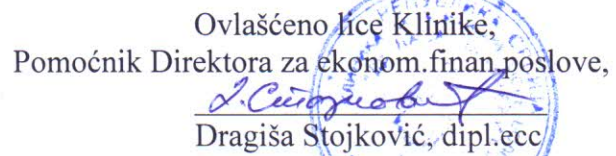 Ovlašćeno lice Klinike,
Pomoćnik Direktora za ekonom.finan.poslove,
Д. Стојковић
Dragiša Stojković, dipl.ecc